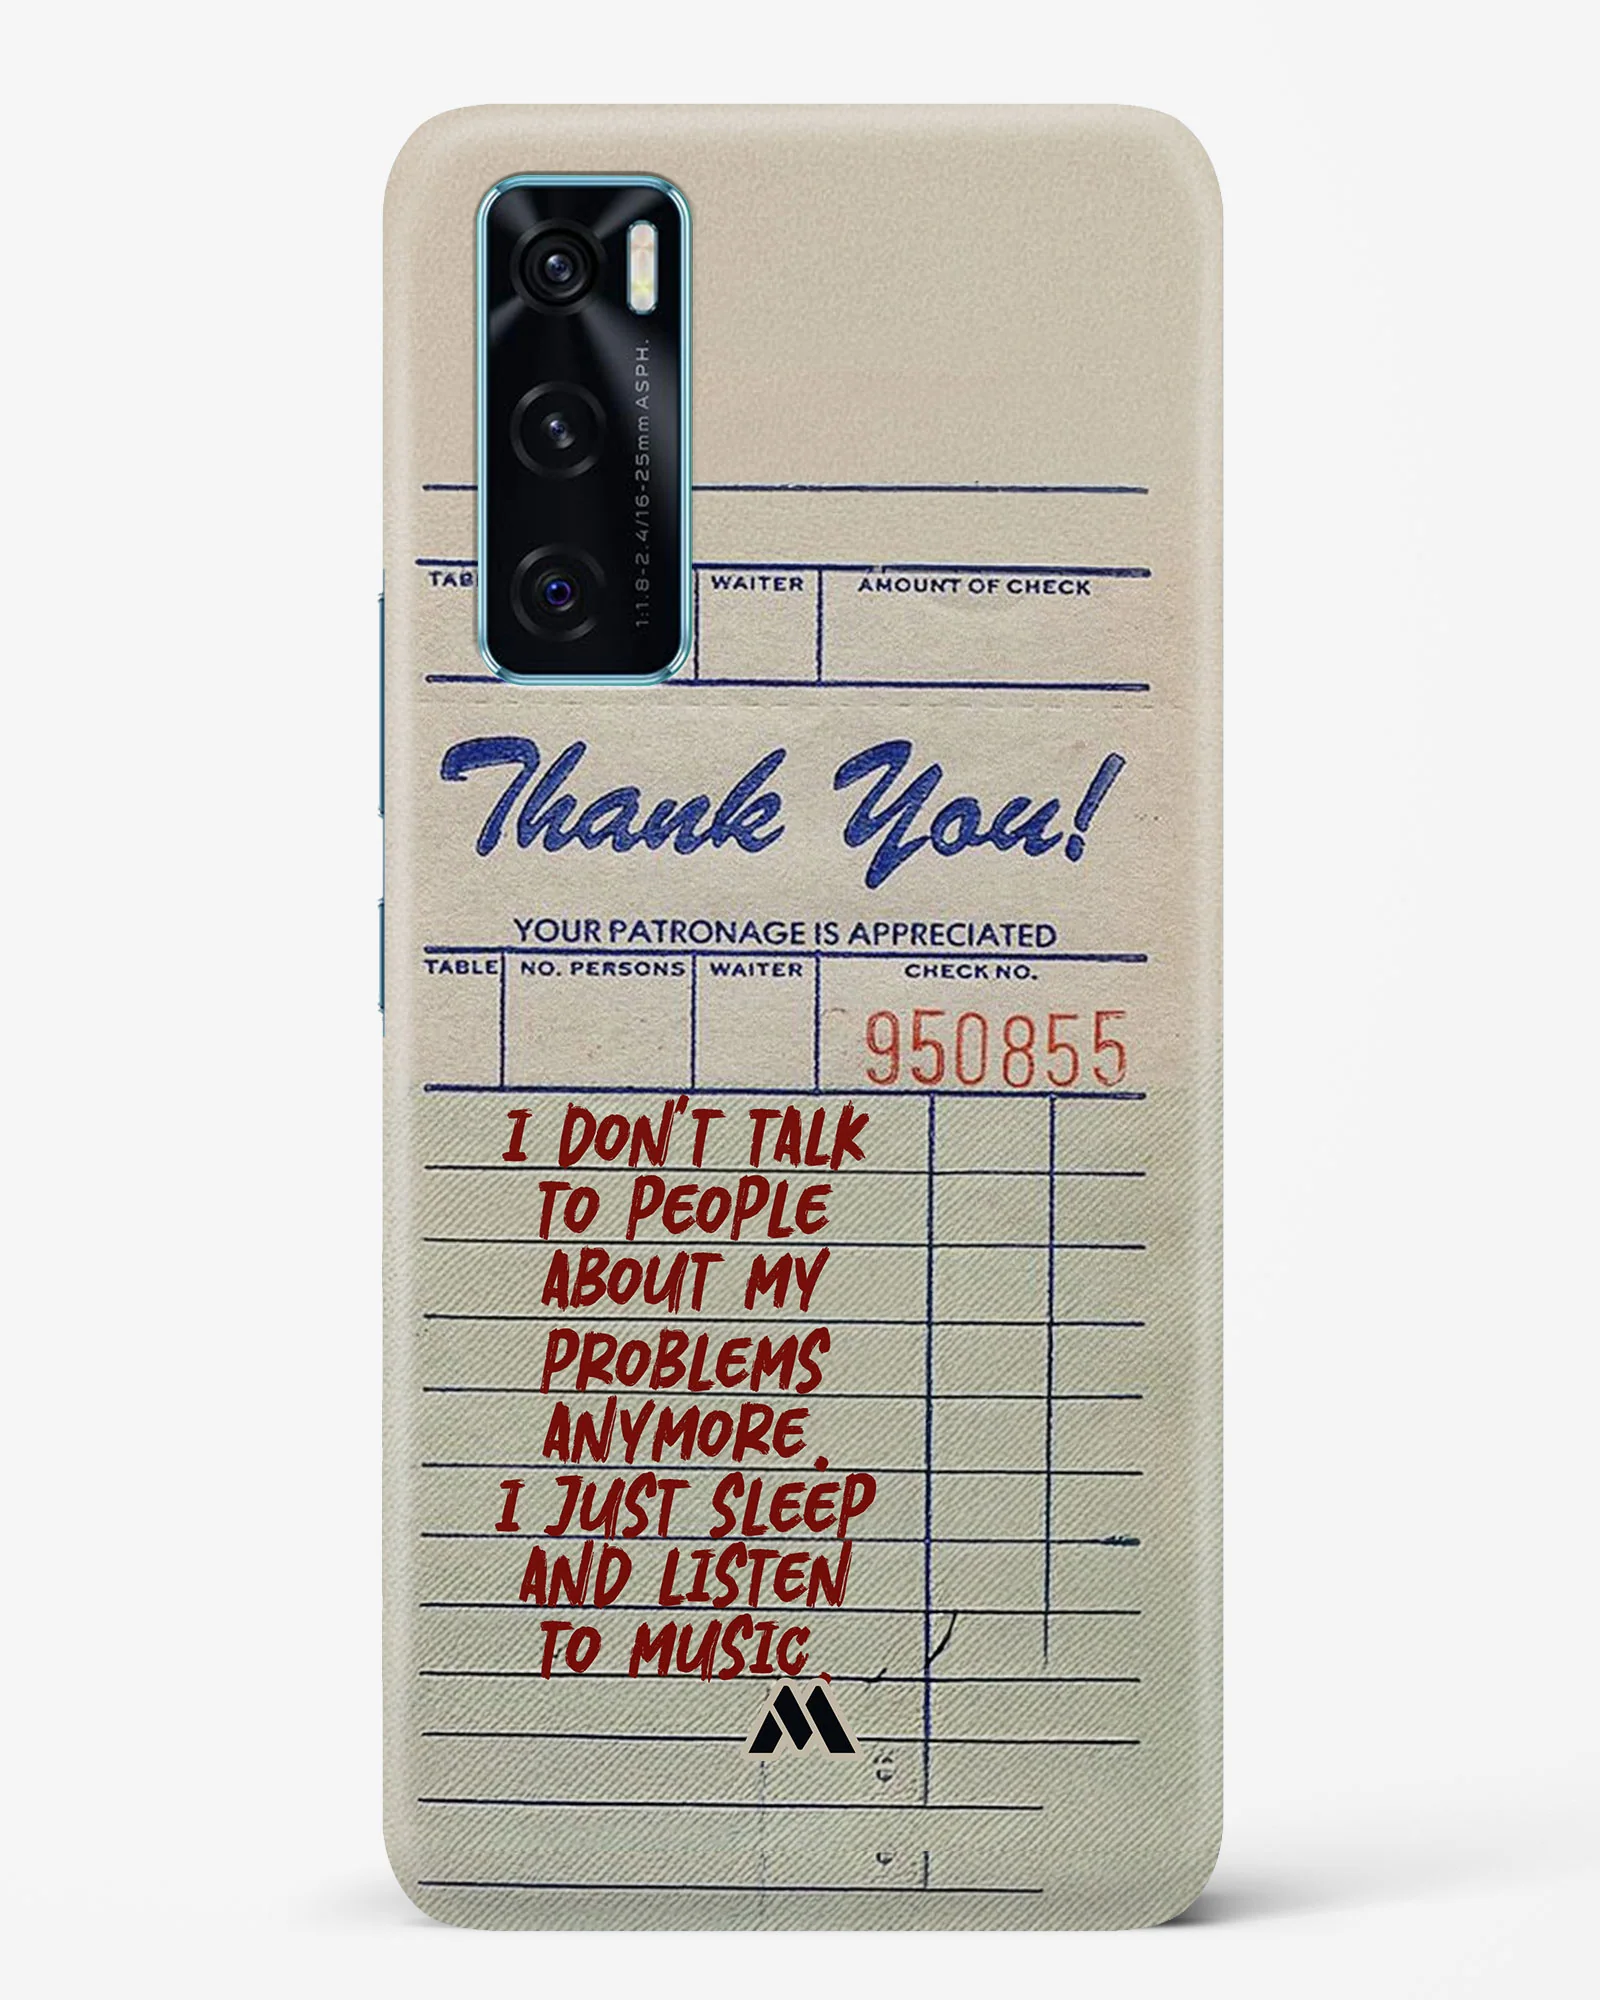 1:1.8-2.4/16-25mm ASPH.
TAB WAITER AMOUNT OF CHECK
Thank You!
YOUR PATRONAGE IS APPRECIATED
TABLE NO. PERSONS WAITER CHECK NO.
950855
I DON'T TALK
TO PEOPLE
ABOUT MY
PROBLEMS
ANYMORE.
I JUST SLEEP
AND LISTEN
TO MUSIC.